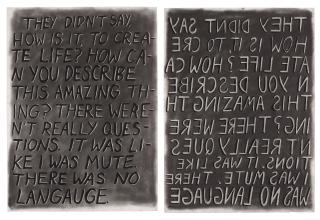 THEY DIDN'T SAY,
HOW IS IT TO CREA-
TE LIFE? HOW CA-
N YOU DESCRIBE
THIS AMAZING TH-
ING? THERE WERE-
N'T REALLY QUES-
TIONS. IT WAS LI-
KE I WAS MUTE.
THERE WAS NO
LANGAUGE.
THEY DIDNT SAY
HOW IS IT TO CRE
ATE LIFE? HOW CA
N YOU DESCRIBE
THIS AMAZING TH
ING? THERE WERE
NT REALLY QUES
TIONS. IT WAS LIKE
I WAS MUTE, THERE
WAS NO LANGUAGE